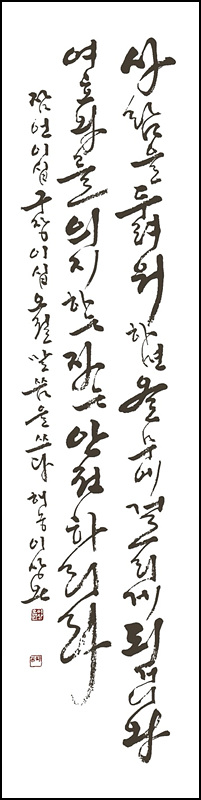 사람을 두려워하면 올무에 걸리게 되거니와
여호와를 의지하는 자는 안전하리라
잠언 이십구장 이십오절 말씀을 쓰다